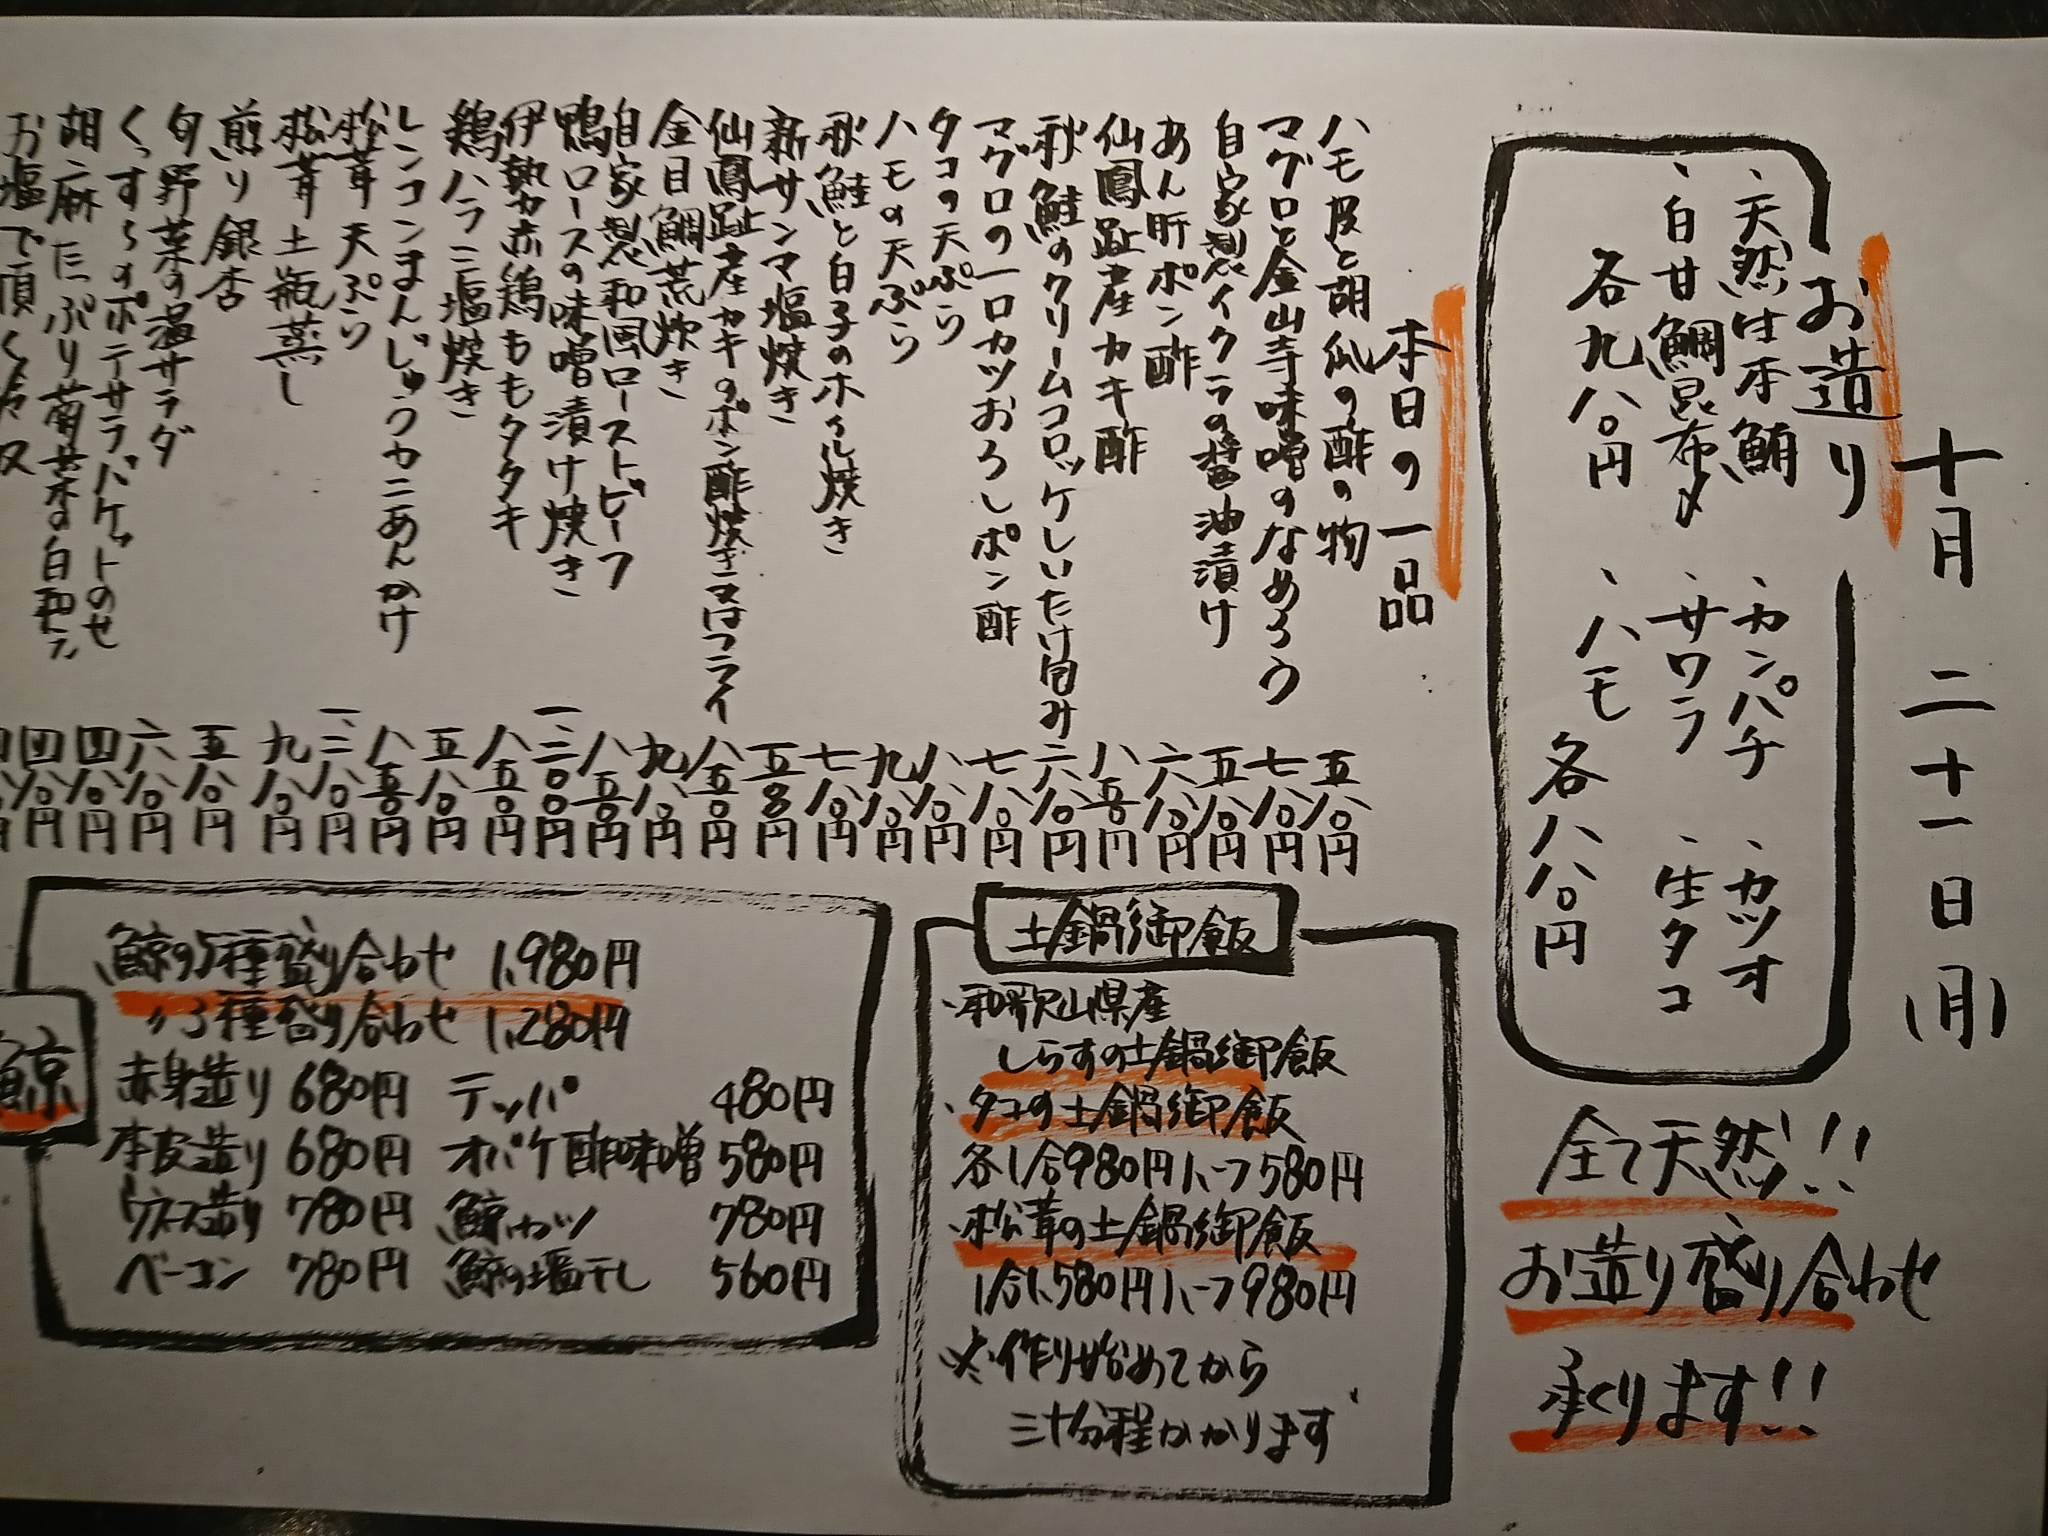 十月二十一日(月)
お造り
、天然生本鮪
、白甘鯛昆布〆
各九八〇円
、カンパチ
、カツオ
、サワラ
、生タコ
、ハモ 各八八〇円
全て天然!!
お造り盛り合わせ
承くります!!
本日の一品
ハモ皮と胡瓜の酢の物 五八〇円
マグロと金山寺味噌のなめろう 七八〇円
自家製イクラの醤油漬け 五八〇円
あん肝ポン酢 六八〇円
仙鳳趾産カキ酢 八五〇円
秋鮭のクリームコロッケしいたけ包み 六八〇円
マグロの一口カツおろしポン酢 七八〇円
タコの天ぷら 八八〇円
ハモの天ぷら 九八〇円
秋鮭と白子のホイル焼き 七八〇円
新サンマ塩焼き 五八〇円
仙鳳趾産カキのポン酢焼き又はフライ 八五〇円
金目鯛荒炊き 九八〇円
自家製和風ローストビーフ 八五〇円
鴨ロースの味噌漬け焼き 一、二〇〇円
伊勢赤鶏ももタタキ 八五〇円
鶏ハラミ塩焼き 五八〇円
レンコンまんじゅうカニあんかけ 八五〇円
松茸天ぷら 一、二八〇円
松茸土瓶蒸し 九八〇円
煎り銀杏 五八〇円
旬野菜の温サラダ 六八〇円
くんすらのポテサラバケットのせ 四八〇円
胡麻たっぷり菊菜の白和え 四八〇円
お塩で頂く
土鍋御飯
、和歌山県産
しらすの土鍋御飯
、タコの土鍋御飯
各1合980円ハーフ580円
、松茸の土鍋御飯
1合1,580円ハーフ980円
※作り始めてから
三十分程かかります
鯨
鯨の5種盛り合わせ 1,980円
〃3種盛り合わせ 1,280円
赤身造り 680円 テッパ 480円
本皮造り 680円 オバケ酢味噌 580円
ウネス造り 780円 鯨カツ 780円
ベーコン 780円 鯨の塩干し 560円